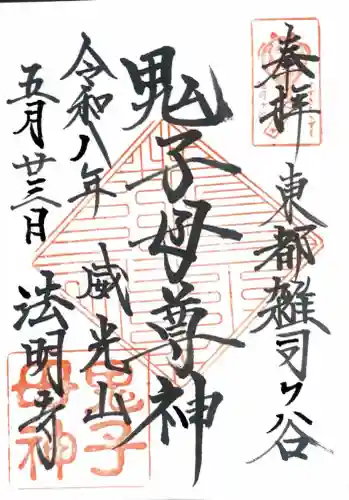 奉拝
東都雑司ケ谷
鬼子母尊神
威光山
法明寺
令和八年
五月廿三日
鬼子
母神